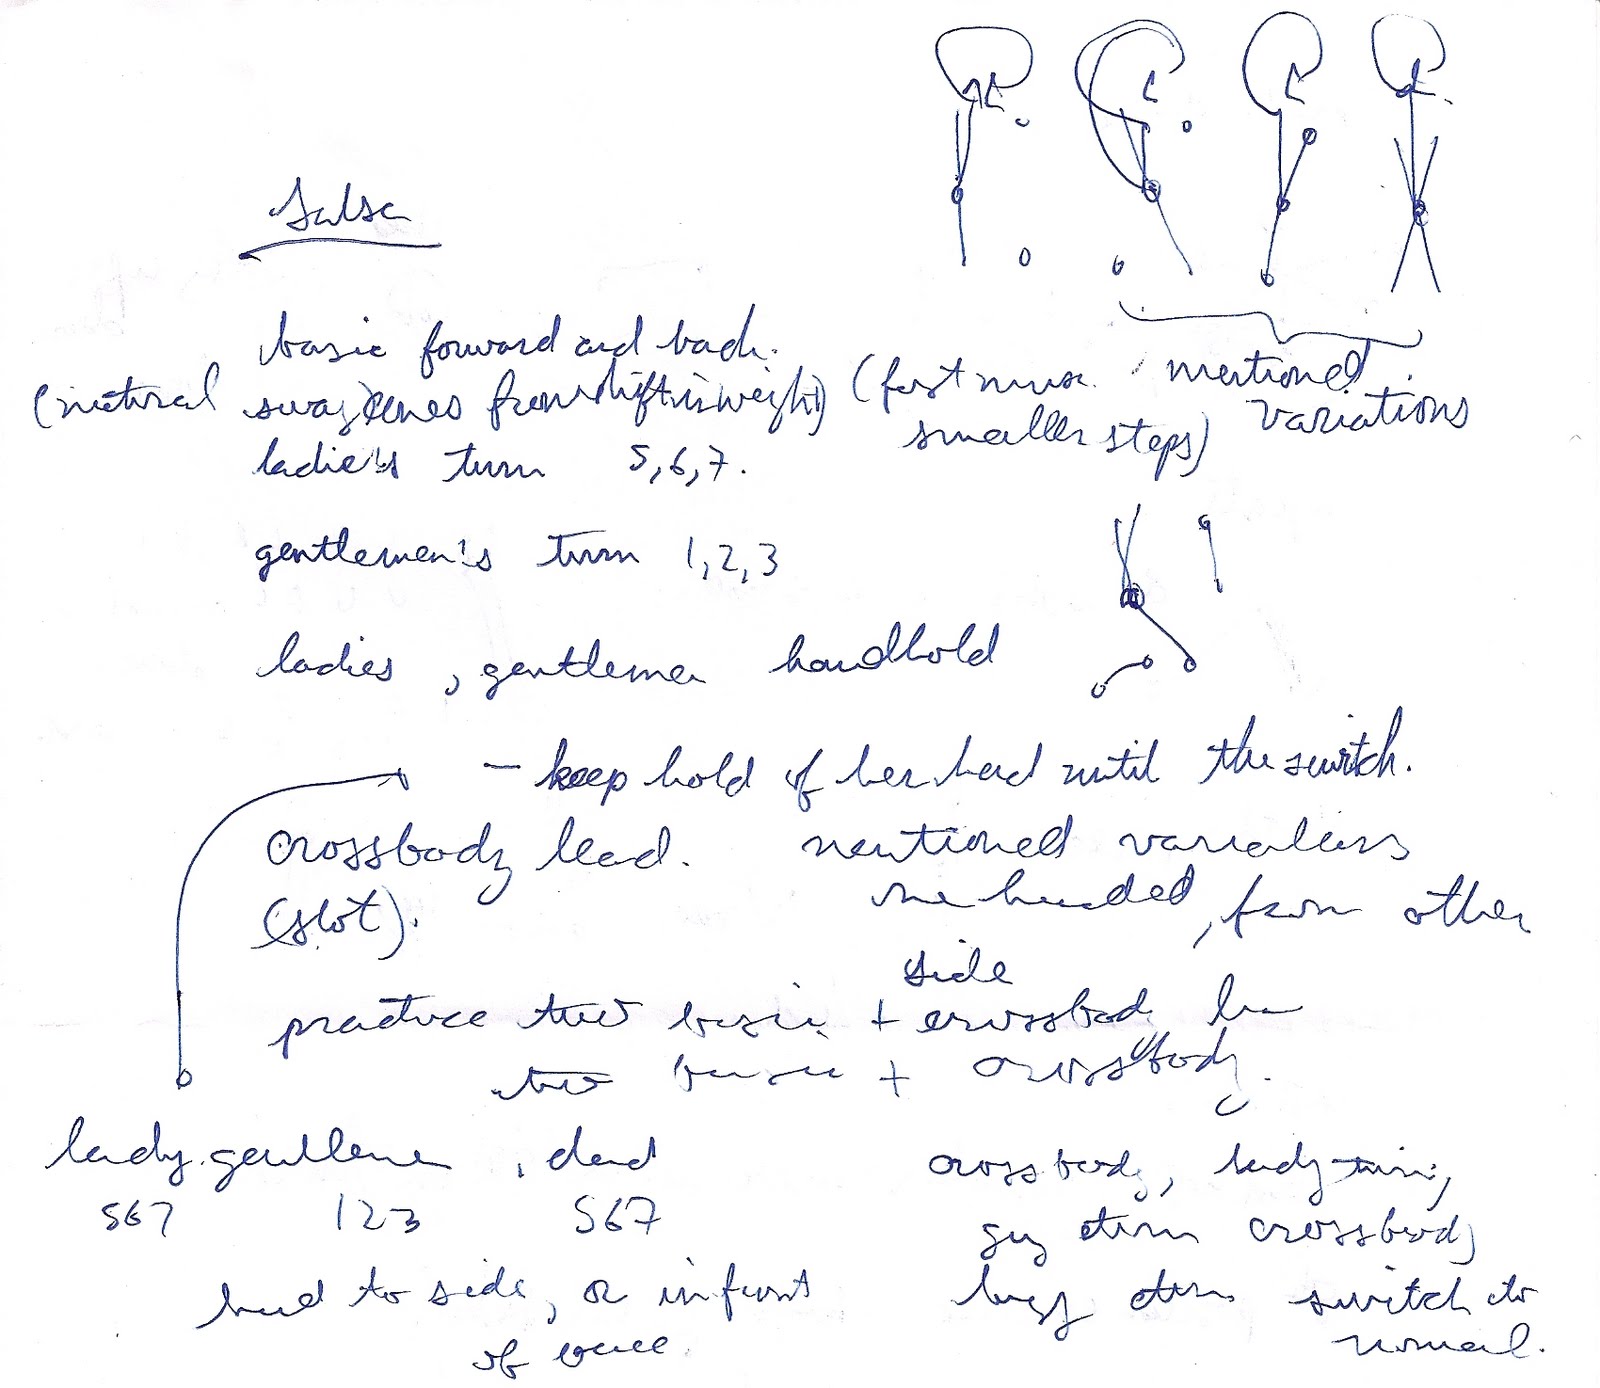 Salsa
basic forward and back.
(natural sway comes from shift in weight) (fast music smaller steps)
mentioned variations
ladie's turn 5,6,7.
gentlemen's turn 1,2,3
ladies, gentlemen handhold
- keep hold of her hand until the switch.
crossbody lead. mentioned variations
(slot). one handed, from other
side
practice two basic + crossbody
two basic + crossbody.
lady gentlemen,
567 123 567
crossbody, lady turn,
guy turn crossbody
hand to side, or in front
turn switch to
of
normal.